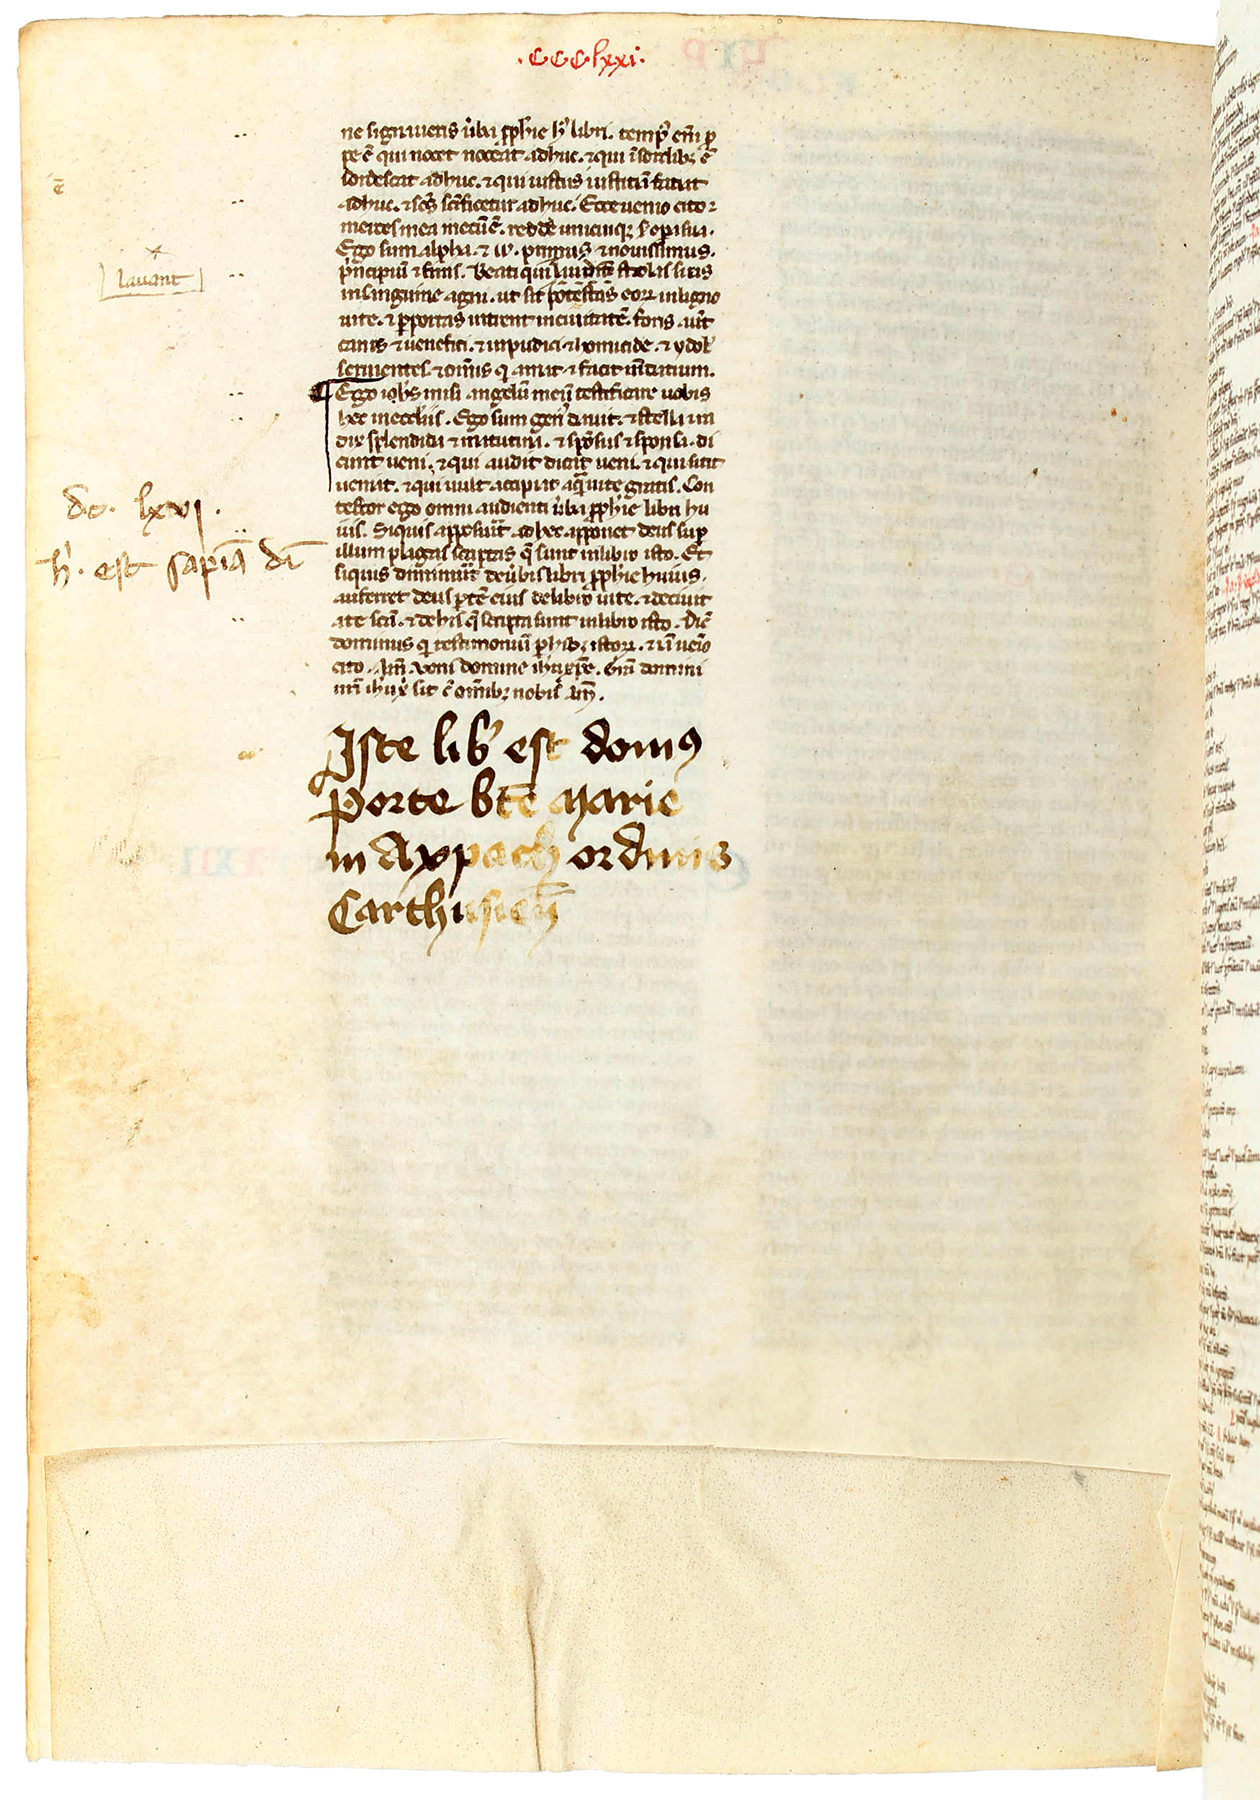 .CCClxxi.
ne signaueris ūba ꝓphīe hꝰ libri. tempꝰ em̄ ꝓ
pe ē qui nocet noceat adhuc. ⁊ qui ī sordibꝫ ē
sordescat adhuc. ⁊ qui iustus iustitiā faciat
adhuc. ⁊ scūs scīficetur adhuc. Ecce uenio cito ⁊
merces mea mecū ē. reddē unicuiqꝫ s̄ opa sua.
Ego sum alpha. ⁊ ω. primus ⁊ nouissimus.
pⁱncipiū ⁊ finis. Beati qui stolis suas
in sanguine agni. ut sit potestas eoꝝ in ligno
uite. ⁊ ꝑ portas intrent in ciuitatē. foris aūt
canis ⁊ uenefici. ⁊ impudici ⁊ homicide. ⁊ ydoł
seruientes. ⁊ omīs q amat ⁊ facit mēdacium.
¶ Ego ihūs misi angelū meū testificare uobis
hec in ecclīis. Ego sum genꝰ dauit. ⁊ stella ma
splendida ⁊ matutina. ⁊ spōsus ⁊ sponsa. di
cunt ueni. ⁊ qui audit dicat ueni. ⁊ qui sitit
ueniat. ⁊ qui uult accipiat aquā uite gratis. Con
testor ego omni audienti ūba ꝓphīe libri hu
ius. Siquis apposuīt ad hec apponet deus suꝑ
illum plagas scriptas q̄ sunt in libro isto. Et
siquis diminuīt de ūbis libri ꝓphīe huius.
auferret deus ꝑtē eius de libro uite. ⁊ de ciuit
ate scā. ⁊ de his q̄ scripta sunt in libro isto. Dic̄
dominus q testimoniū ꝑhibꝫ istoꝝ. ⁊ uenio
cito. Am̄. ueni domine ihū xpē. Grā domini
nr̄i ihū xi sit c̄ omībꝫ nobis Am̄.
lauant
dc. lxvj.
h'. est sapīa dī
Iste lib' est domꝰ
porte btē Marie
in Axpach ordinis
Carthusien̄